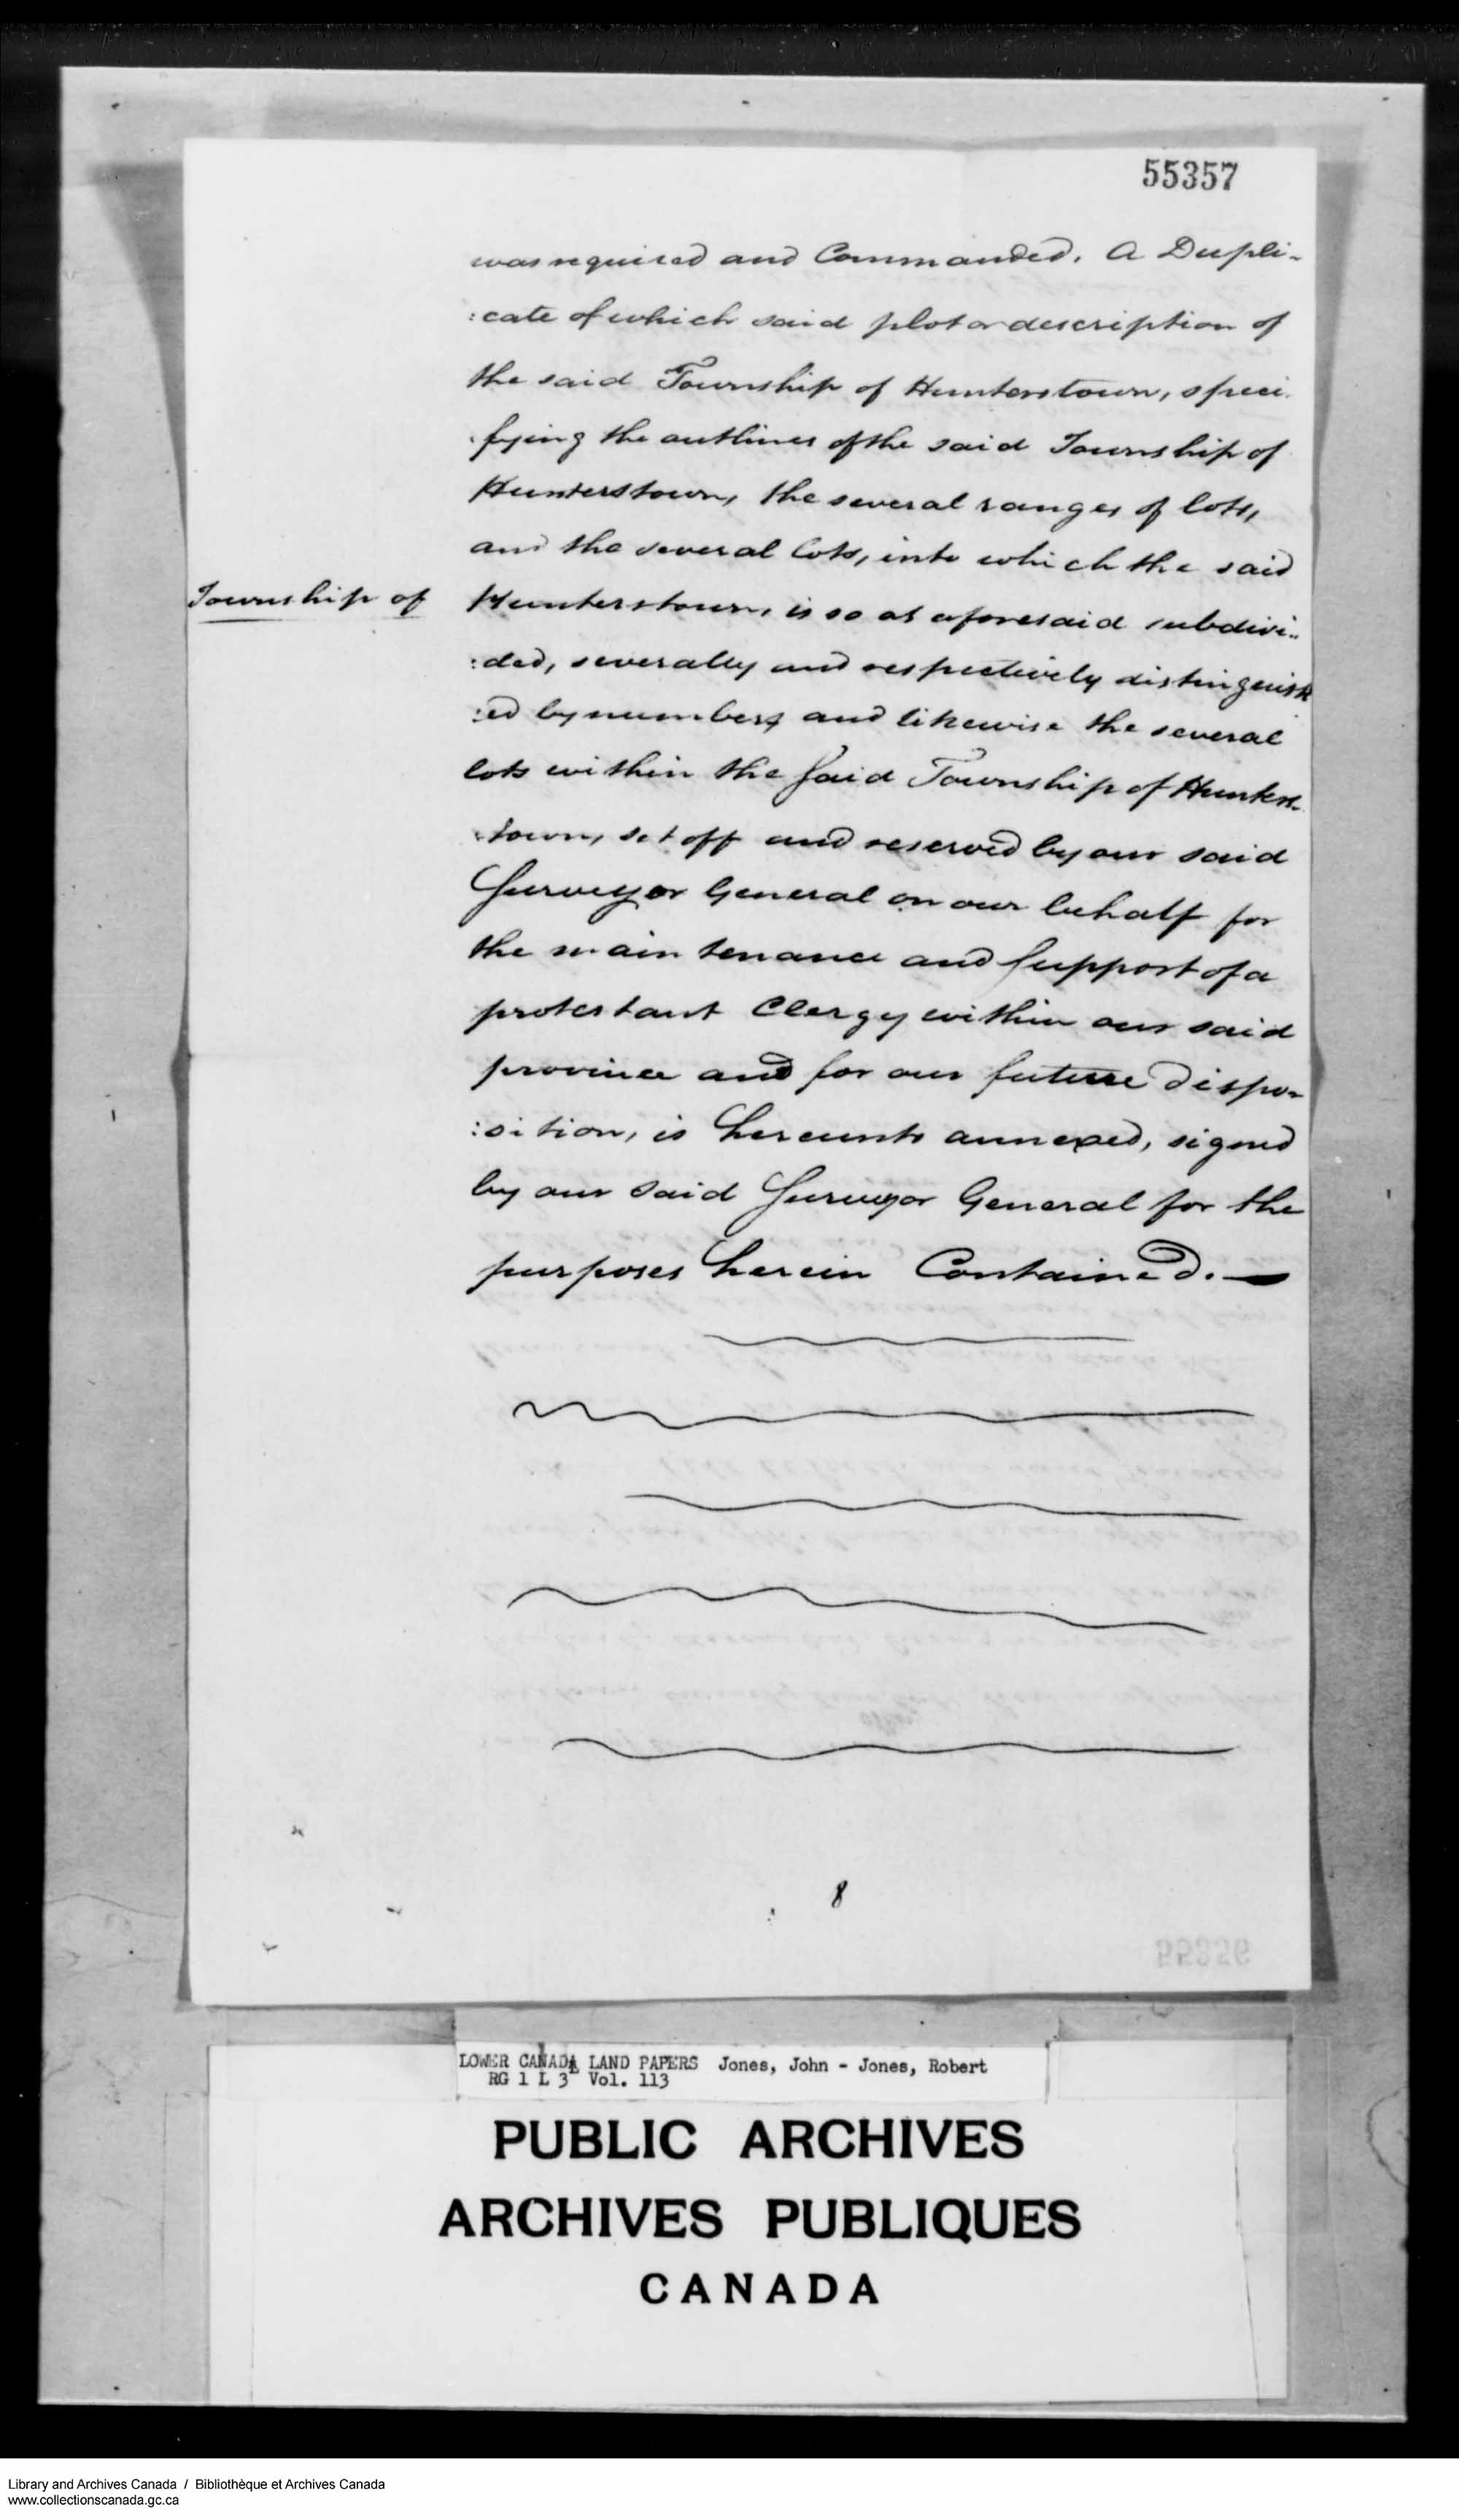 55357
was required and Commanded. A Dupli-
:cate of which said plot or description of
the said Township of Hunterstown, speci-
:fying the outlines of the said Township of
Hunterstown, the several ranges of lots,
and the several lots, into which the said
Township of
Hunterstown, is so as aforesaid subdivi-
:ded, severally and respectively distinguish
:ed by numbers and likewise the several
lots within the said Township of Hunters-
:town, set off and reserved by our said
Surveyor General on our behalf for
the maintenance and support of a
protestant Clergy within our said
province and for our future dispo-
:sition, is hereunto annexed, signed
by our said Surveyor General for the
purposes herein Contained.—
8
55356
LOWER CANADA LAND PAPERS Jones, John - Jones, Robert
RG 1 L 3 Vol. 113
PUBLIC ARCHIVES
ARCHIVES PUBLIQUES
CANADA
Library and Archives Canada / Bibliothèque et Archives Canada
www.collectionscanada.gc.ca